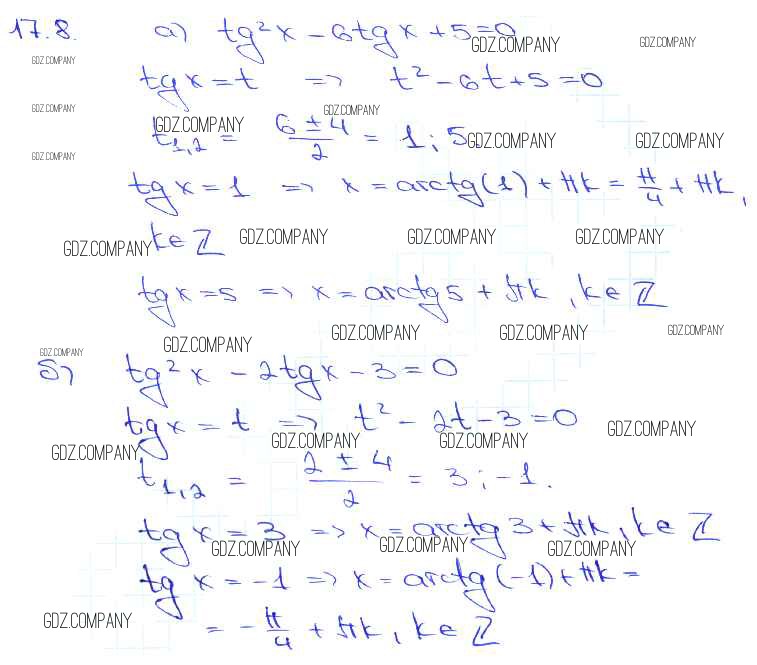 17.8. а) tg²x - 6tgx + 5 = 0
GDZ.COMPANY GDZ.COMPANY
GDZ.COMPANY
tgx = t => t² - 6t + 5 = 0
GDZ.COMPANY GDZ.COMPANY
GDZ.COMPANY
t₁,₂ = (6 ± 4)/2 = 1; 5
GDZ.COMPANY GDZ.COMPANY
GDZ.COMPANY
tgx = 1 => x = arctg(1) + πk = π/4 + πk,
k ∈ Z
GDZ.COMPANY GDZ.COMPANY GDZ.COMPANY GDZ.COMPANY
tgx = 5 => x = arctg5 + πk, k ∈ Z
GDZ.COMPANY GDZ.COMPANY GDZ.COMPANY GDZ.COMPANY
GDZ.COMPANY
б) tg²x - 2tgx - 3 = 0
tgx = t => t² - 2t - 3 = 0
GDZ.COMPANY GDZ.COMPANY GDZ.COMPANY GDZ.COMPANY
t₁,₂ = (2 ± 4)/2 = 3; -1.
tgx = 3 => x = arctg3 + πk, k ∈ Z
GDZ.COMPANY GDZ.COMPANY GDZ.COMPANY
tgx = -1 => x = arctg(-1) + πk =
GDZ.COMPANY
= -π/4 + πk, k ∈ Z